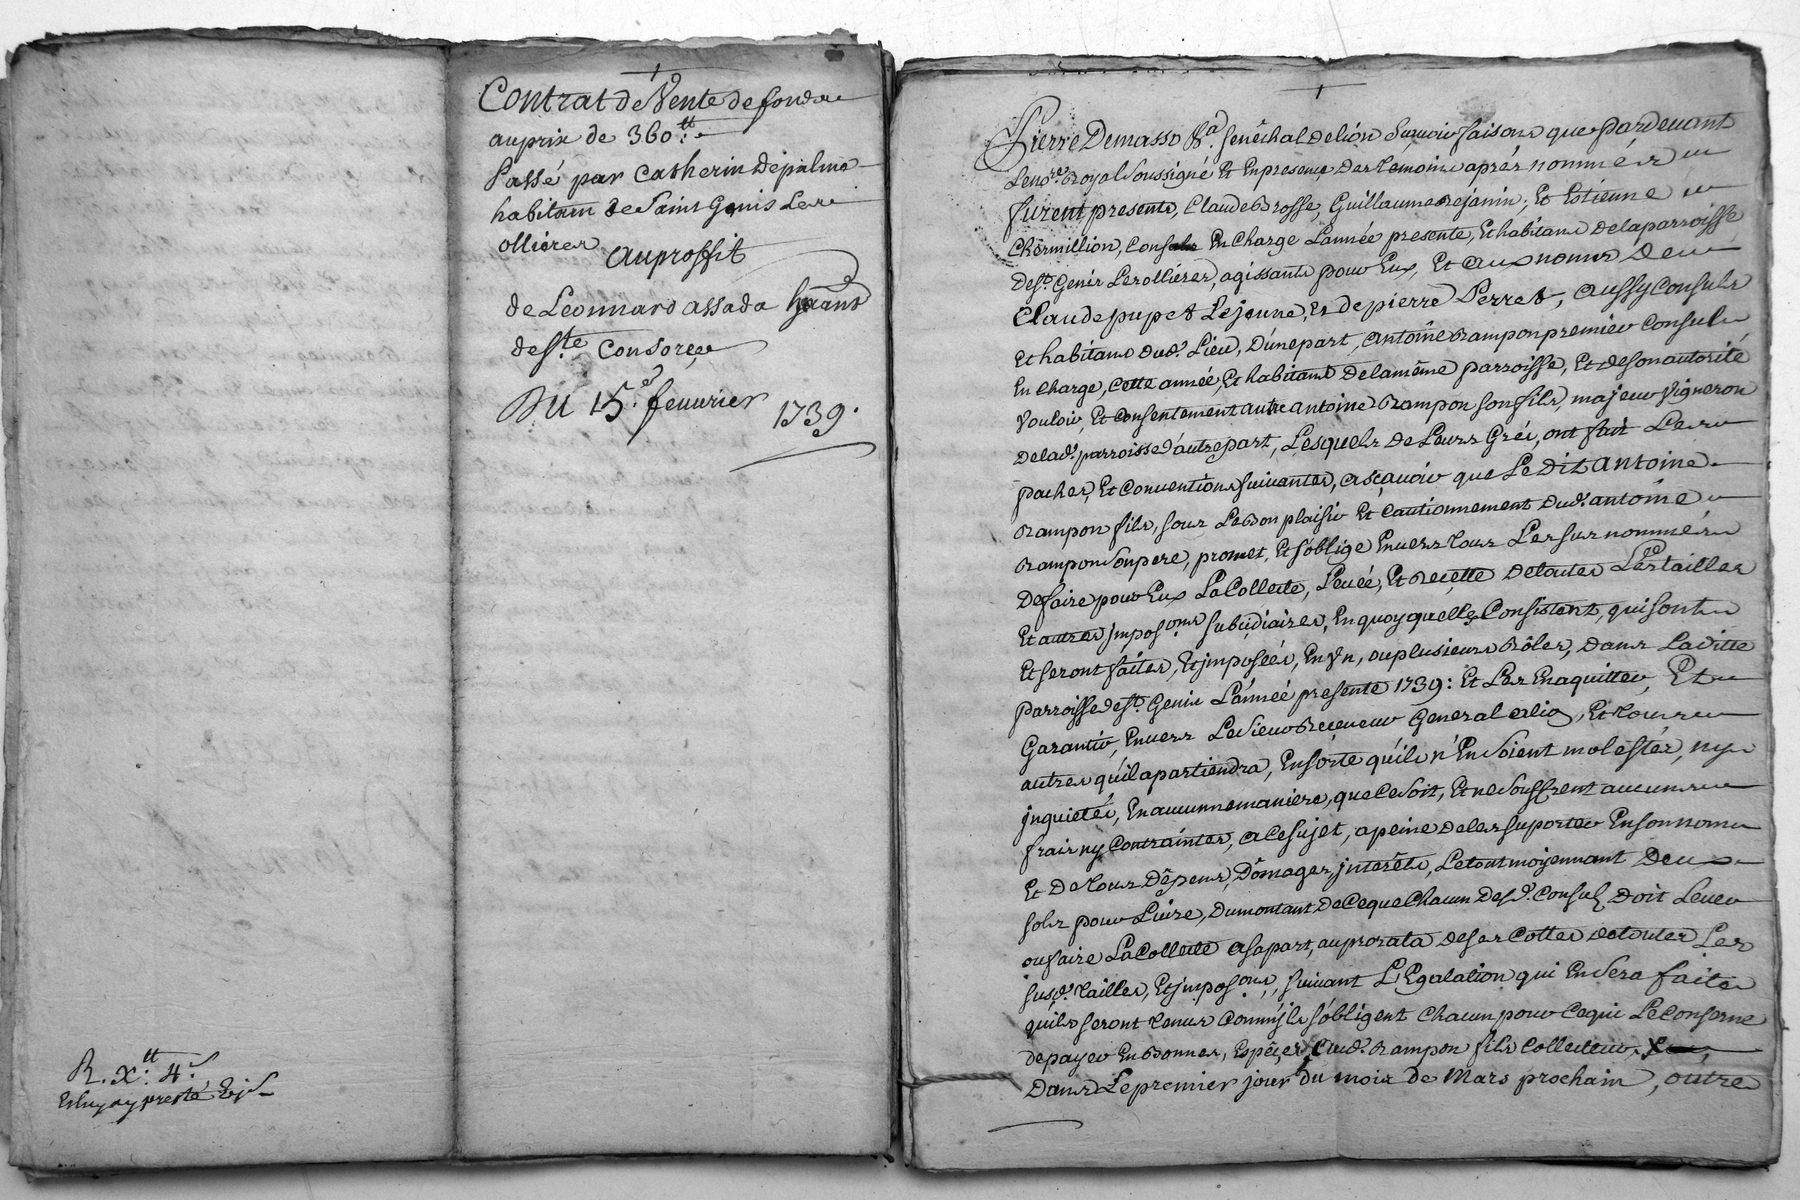 Contrat de Vente de fond
au prix de 360 tt
Passé par Catherin depalme
habitant de Saint Genis Les
ollieres
au proffit
de Leonnard assada
de ste Consorce
Du 15e feuurier
1739.
R. X tt 4 s
Pierre Demasso Sénéchal de lion Sçauoir faisons que pardeuant
Le nore Royal Soussigné Et En presence Des temoins aprés nommés
furent presents, Claude Brosse, Guillaume Dejanin, Et Estienne
Chermillion, Consuls En Charge L'année presente, Et habitans de la parroisse
De st. Genis Les ollieres, agissants pour Eux, Et aux noms De
Claude pupet Le jeune, Et de pierre Perret, aussy Consuls
et habitans dud. Lieu, D'une part, antoine Rampon premier Consul
En Charge, Cette année, Et habitant De la même parroisse, Et de son autorité
Vouloir, Et Consentement autre antoine Rampon son fils, majeur Vigneron
De lad. parroisse d'autre part, Lesquels De Leurs Grés, ont fait Les
paches, Et Conuentions suiuantes, asçauoir que Ledit antoine
Rampon fils, sous Le Bon plaisir Et Cautionnement Dud. antoine
Rampon Son pere, promet, Et s'oblige Enuers tous Les sus nommés
De faire pour Eux La Collecte, Leuée, Et Recette De toutes Les tailles
Et autres jmposons subcidiaires, En quoy quelles Consistent, qui sont
Et seront faites, Et jmposées, En Vn, ou plusieurs Rôles, Dans La ditte
Parroisse de st. Genis L'année presente 1739: Et Les En aquitter, Et
Garantir, Enuers Le Sieur Receueur General alion, Et tous
autres qu'il apartiendra, En sorte qu'ils n'En Soient molestés, ny
jnquietés, En aucunne maniere, que Ce Soit, Et ne Souffrent aucuns
frais ny Contraintes, a Ce Sujet, a peine De les suporter En son nom
Et De tous Dêpens, Domages, jnterêts, Le tout moyennant Deux
sols pour Liure, Du montant De Ce que Chacun Desd. Consuls Doit Leuer
ou faire La Collecte a sa part, au prorata De ses Cottes De toutes Les
susd. tailles, Et jmposons, suiuant L'Egalation qui En Sera faite
qu'ils seront tenus Comm'jls s'obligent Chacun pour Ce qui Le Conserne
de payer En Bonnes, Espêces, Aud. Rampon fils Collecteur
Dans Le premier jour du mois de Mars prochain, outre